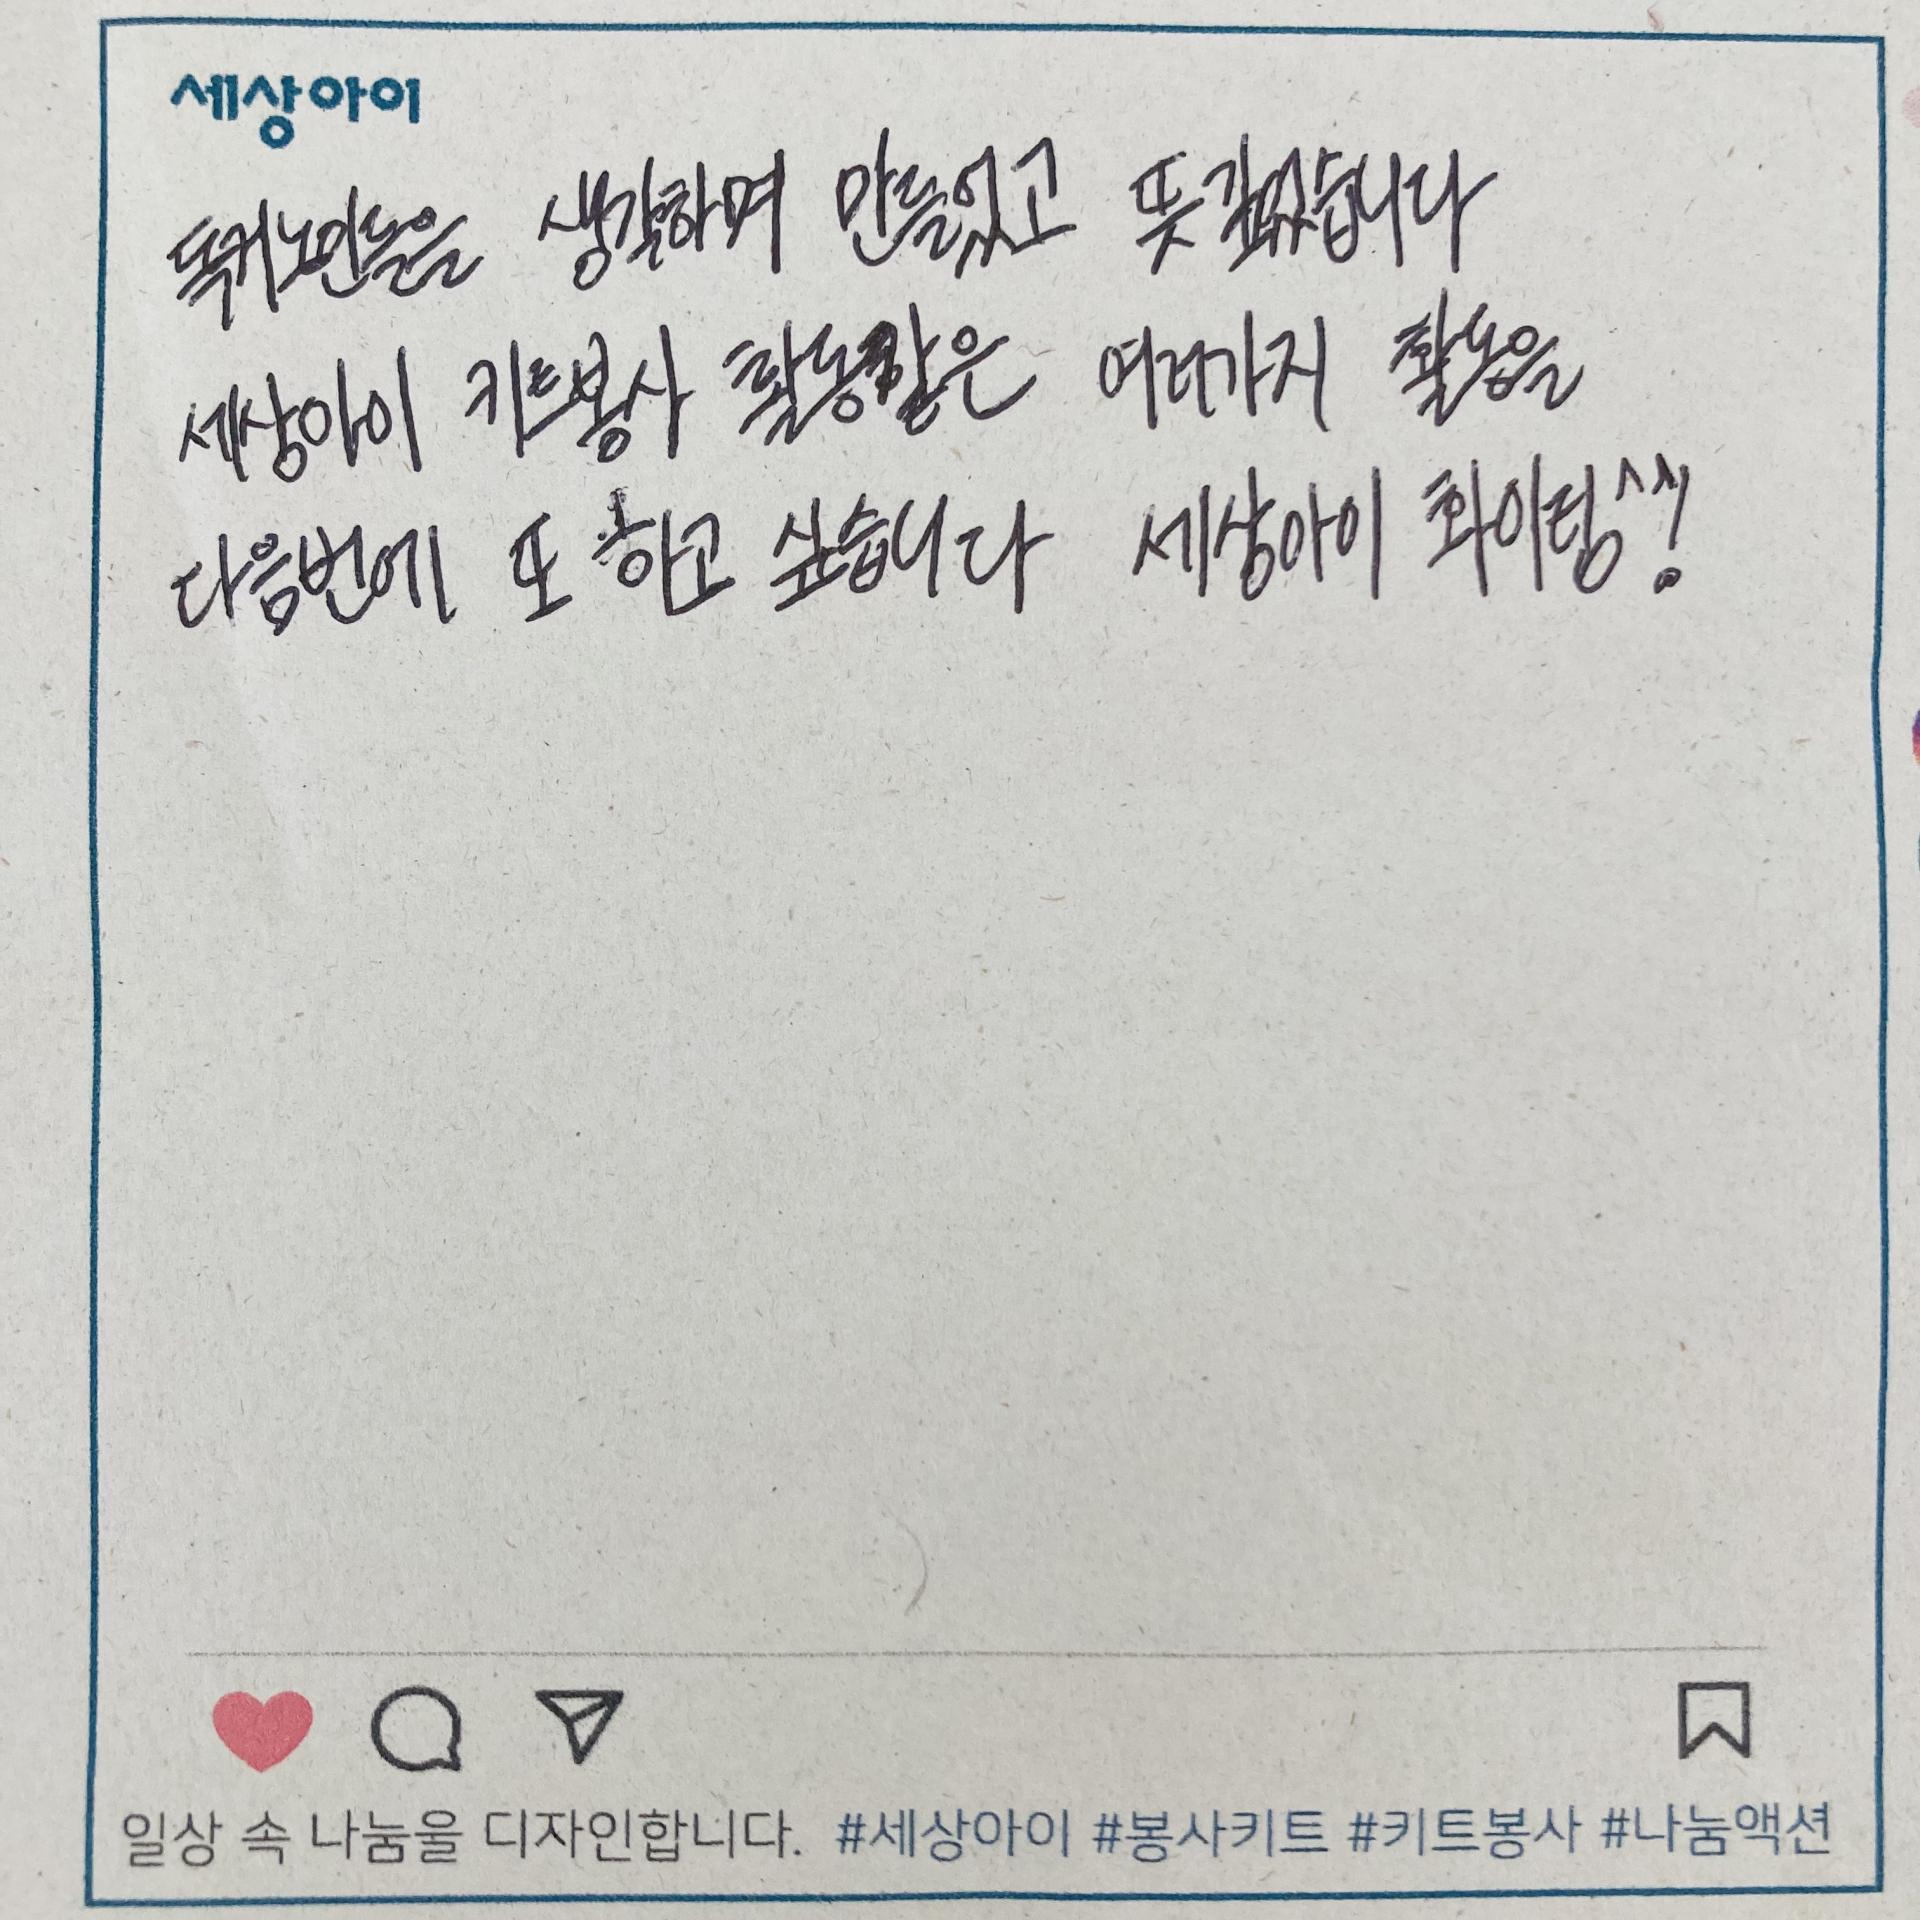 세상아이
독거노인들을 생각하며 만들었고 뜻 깊었습니다
세상아이 키트봉사 활동같은 여러가지 활동을
다음번에 또 하고 싶습니다 세상아이 화이팅^^!
일상 속 나눔을 디자인합니다. #세상아이 #봉사키트 #키트봉사 #나눔액션